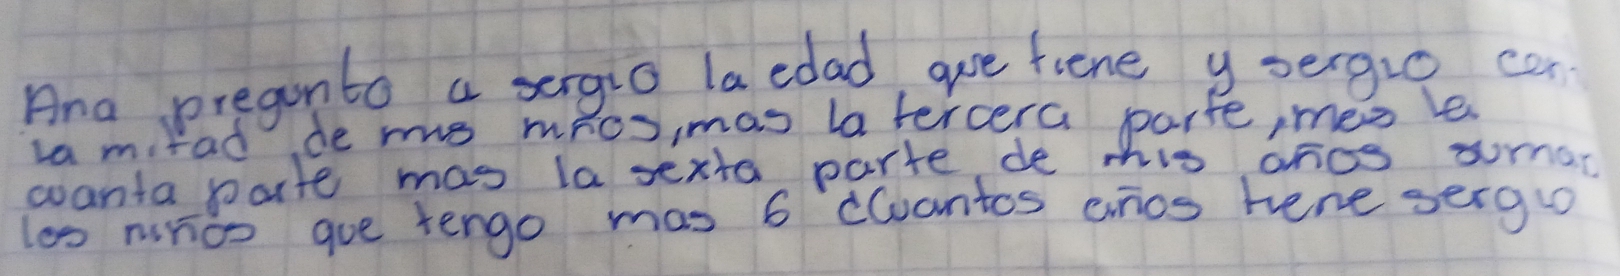 Ana pregunto a sergio la edad que tiene y sergio con
la mitad de mis niños, mas la tercera parte, mas la
cuanta parte mas la sexta parte de mis años suman
los niños que tengo mas 6 cCuantos años tiene sergio